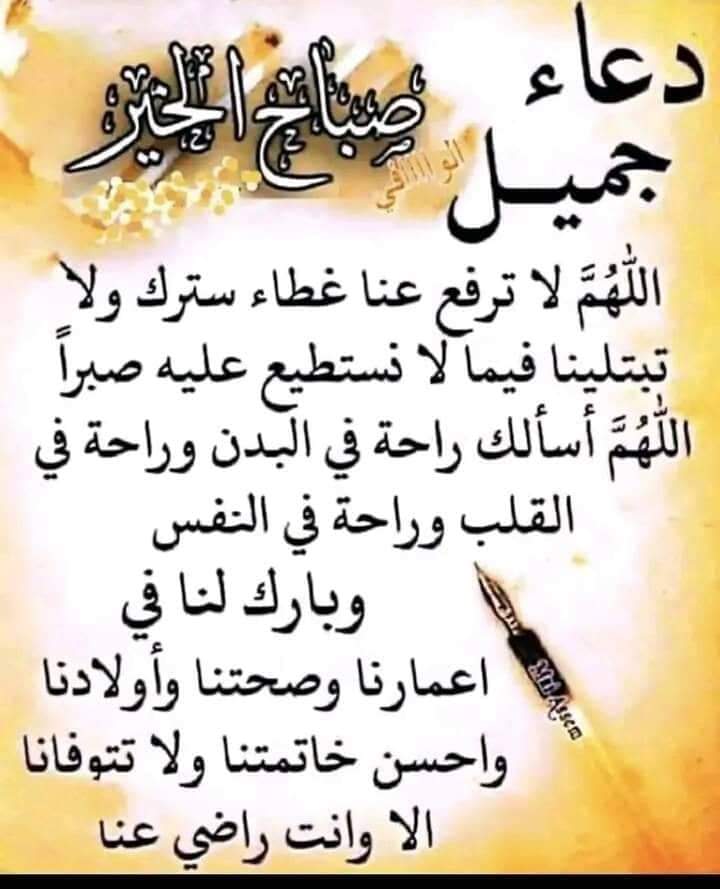 دعاء
جميل
صباح الخير
الوااااافي
اللَّهُمَّ لا ترفع عنا غطاء سترك ولا
تبتلينا فيما لا نستطيع عليه صبراً
اللَّهُمَّ أسألك راحة في البدن وراحة في
القلب وراحة في النفس
وبارك لنا في
اعمارنا وصحتنا وأولادنا
واحسن خاتمتنا ولا تتوفانا
الا وانت راضي عنا